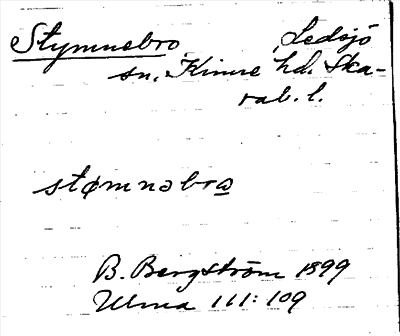 Stymnebro Ledsjö
sn. Kinne hd. Ska-
rab. l.
stømnəbro̲
B. Bergström 1899
Ulma 111:109